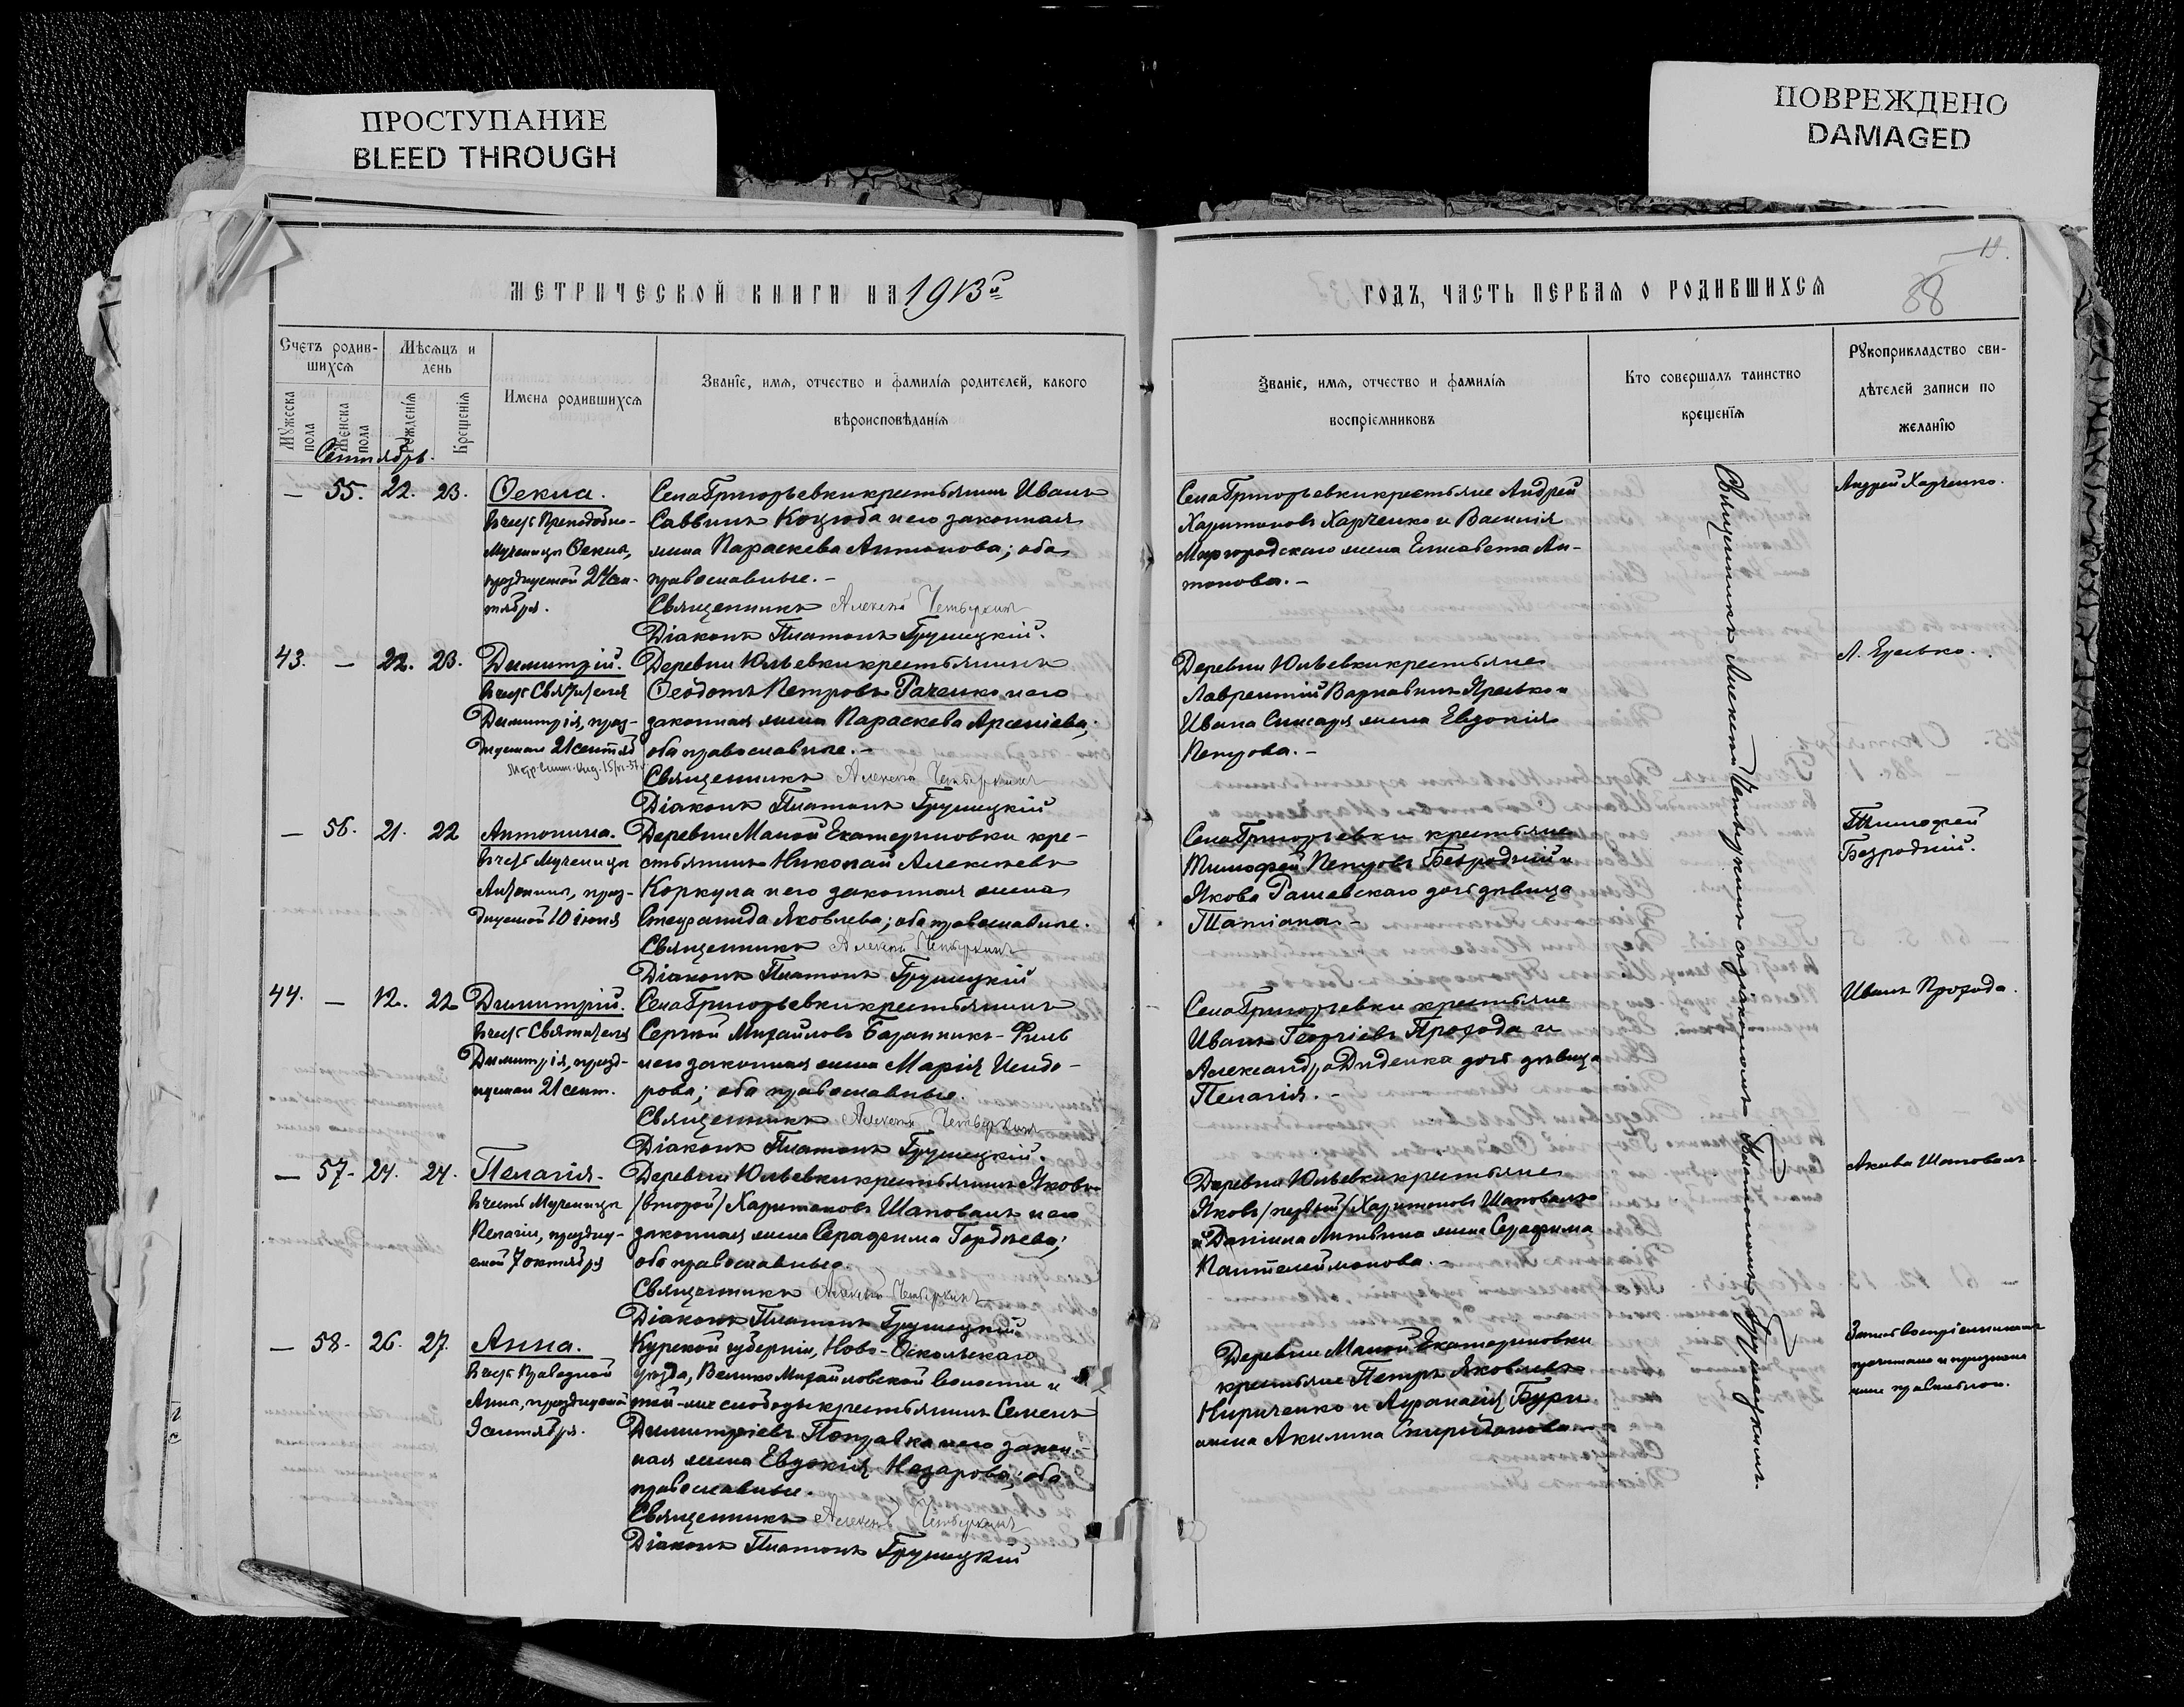 ПРОСТУПАНИЕ
BLEED THROUGH
ПОВРЕЖДЕНО
DAMAGED
МЕТРИЧЕСКОЙ КНИГИ НА 1913й
ГОДЪ, ЧАСТЬ ПЕРВАЯ О РОДИВШИХСЯ
88
Счетъ родив-
шихся
Мужеска пола
Женска пола
Мѣсяцъ и
день
Рожденія
Крещенія
Имена родившихся
Званіе, имя, отчество и фамилія родителей, какого
вѣроисповѣданія
Званіе, имя, отчество и фамилія
воспріемниковъ
Кто совершалъ таинство
крещенія
Рукоприкладство сви-
дѣтелей записи по
желанію
Сентябрь.
— 55. 22. 23.
Ѳекла.
въ честь Преподобно-
мученицы Ѳеклы,
празднуемой 24 сен-
тября.
Села Григорьевки крестьянинъ Иванъ
Саввинъ Коцюба и его законная
жена Параскева Антонова; оба
православные. -
Священникъ Алексей Четверкинъ
Діаконъ Платонъ Грушецкій.
Села Григорьевки крестьяне Андрей
Харитоновъ Харченко и Василія
Миргородскаго жена Елисавета Ан-
тонова. -
Андрей Харченко.
43. — 22. 23.
Димитрій.
въ честь Святителя
Димитрія, праз-
днуемаго 21 сентяб
Деревни Юльевки крестьянинъ
Ѳеодотъ Петровъ Раченко и его
законная жена Параскева Арсеніева;
оба православные. -
Священникъ Алексей Четверкинъ
Діаконъ Платонъ Грушецкій
Деревни Юльевки крестьяне
Лаврентій Варнавинъ и
Ивана жена Евдокія
Петрова. -
— 56. 21. 22
Антонина.
въ честь Мученицы
Антонины, праз-
днуемой 10 іюня
Деревни Малой Екатериновки кре-
стьянинъ Николай Алексѣевъ
Коркула и его законная жена
Стефанида Яковлева; оба православные.
Священникъ Алексей Четверкинъ
Діаконъ Платонъ Грушецкій
Села Григорьевки крестьяне
Тимофей Петровъ Безродній и
Якова Рашевскаго дочь дѣвица
Татіана. -
Тимофей
Безродній.
44. — 12. 22
Димитрій.
въ честь Святителя
Димитрія, празд-
нуемаго 21 сент.
Села Григорьевки крестьянинъ
Сергѣй Михайловъ
и его законная жена Марія Исидо-
рова; оба православные.
Священникъ Алексей Четверкинъ
Діаконъ Платонъ Грушецкій.
Села Григорьевки крестьяне
Иванъ Георгіевъ Прохода и
Александра Диденка дочь дѣвица
Пелагія. -
Иванъ Прохода.
— 57. 24. 24.
Пелагія.
въ честь Мученицы
Пелагіи, праздну-
емой 7 октября
Деревни Юльевки крестьянинъ Яковъ
/второй/ Харитоновъ Шаповалъ и его
законная жена Серафима Гордѣева;
оба православные.
Священникъ Алексей Четверкинъ
Діаконъ Платонъ Грушецкій.
Деревни Юльевки крестьяне
Яковъ /первый/ Харитоновъ Шаповалъ
и Даніила Литвина жена Серафима
Пантелеймонова. -
Шаповалъ.
— 58. 26. 27.
Анна.
въ честь Праведной
Анны, празднуемой
9 сентября.
Курской губерніи, Ново-Оскольскаго
уѣзда, Велико Михайловской волости и
той-же слободы крестьянинъ Семенъ
Димитріевъ Поправка и его закон-
ная жена Евдокія Назарова; оба
православные.
Священникъ Алексей Четверкинъ
Діаконъ Платонъ Грушецкій
Деревни Малой Екатериновки
крестьяне Петръ Яковлевъ
Кириченко и Афанасія Бури
жена Акилина Спиридонова. -
Запись воспріемниками
прочитана и признана
ими правильною.
Священникъ Алексей Четверкинъ съ діакономъ Платономъ Грушецкимъ.